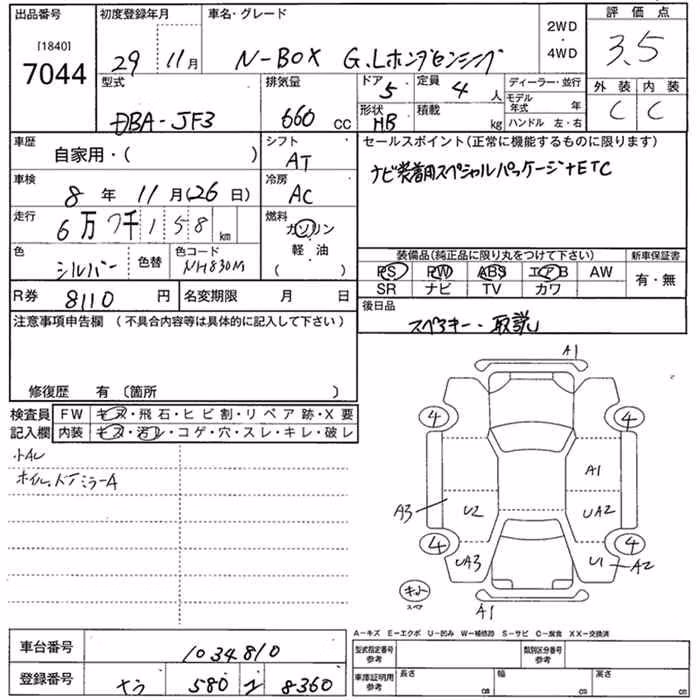 出品番号 初度登録年月 車名・グレード 2WD・4WD 評価点
[1840] 7044 29 11月 N-BOX G.Lホンダセンシング 3.5
型式 排気量 ドア 5 定員 4人 ディーラー・並行 外装 内装
DBA-JF3 660 CC 形状 HB 積載 kg モデル年式 年 C C
ハンドル 左・右
車歴 自家用・( ) シフト AT セールスポイント(正常に機能するものに限ります)
車検 8年 11月(26日) 冷房 AC ナビ装着用スペシャルパッケージ+ETC
走行 6万7千158km 燃料 ガソリン
軽・油
( )
色 シルバー 色替 色コード NH830M
装備品(純正品に限り丸をつけて下さい) 新車保証書
PS PW ABS エアB AW 有・無
SR ナビ TV カワ
R券 8110円 名変期限 月 日 後日品
スペアキー・取説
注意事項申告欄 (不具合内容等は具体的に記入して下さい)
修復歴 有 〔箇所 〕
検査員 FW キズ・飛石・ヒビ割・リペア跡・X要
記入欄 内装 キズ・汚レ・コゲ・穴・スレ・キレ・破レ
小キレ
ホイル、ドアミラーA
A1
4 4
A1
A3 U2 UA2
4 4
UA3 U1 A2
キット
スペア
A1
A-キズ E-エクボ U-凹み W-補修跡 S-サビ C-腐食 XX-交換済
車台番号 1034810 型式指定番号 参考 類別区分番号 参考
登録番号 580 8360 車庫証明用 参考 長さ cm 幅 cm 高さ cm